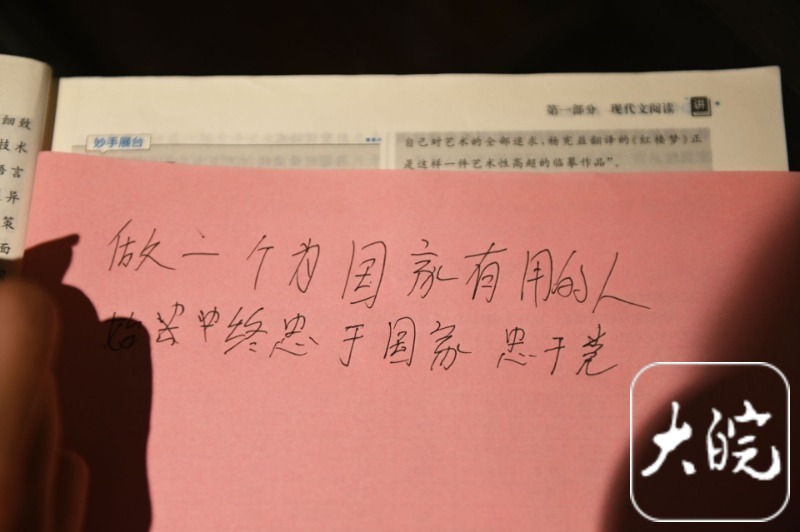 细致
技术
语言
异
策
面
第一部分 现代文阅读 讲
妙手展台
自己对艺术的全部追求,杨宪益翻译的《红楼梦》正
是这样一件艺术性高超的临摹作品”。
做一个为国家有用的人
始终忠于国家 忠于党
大皖